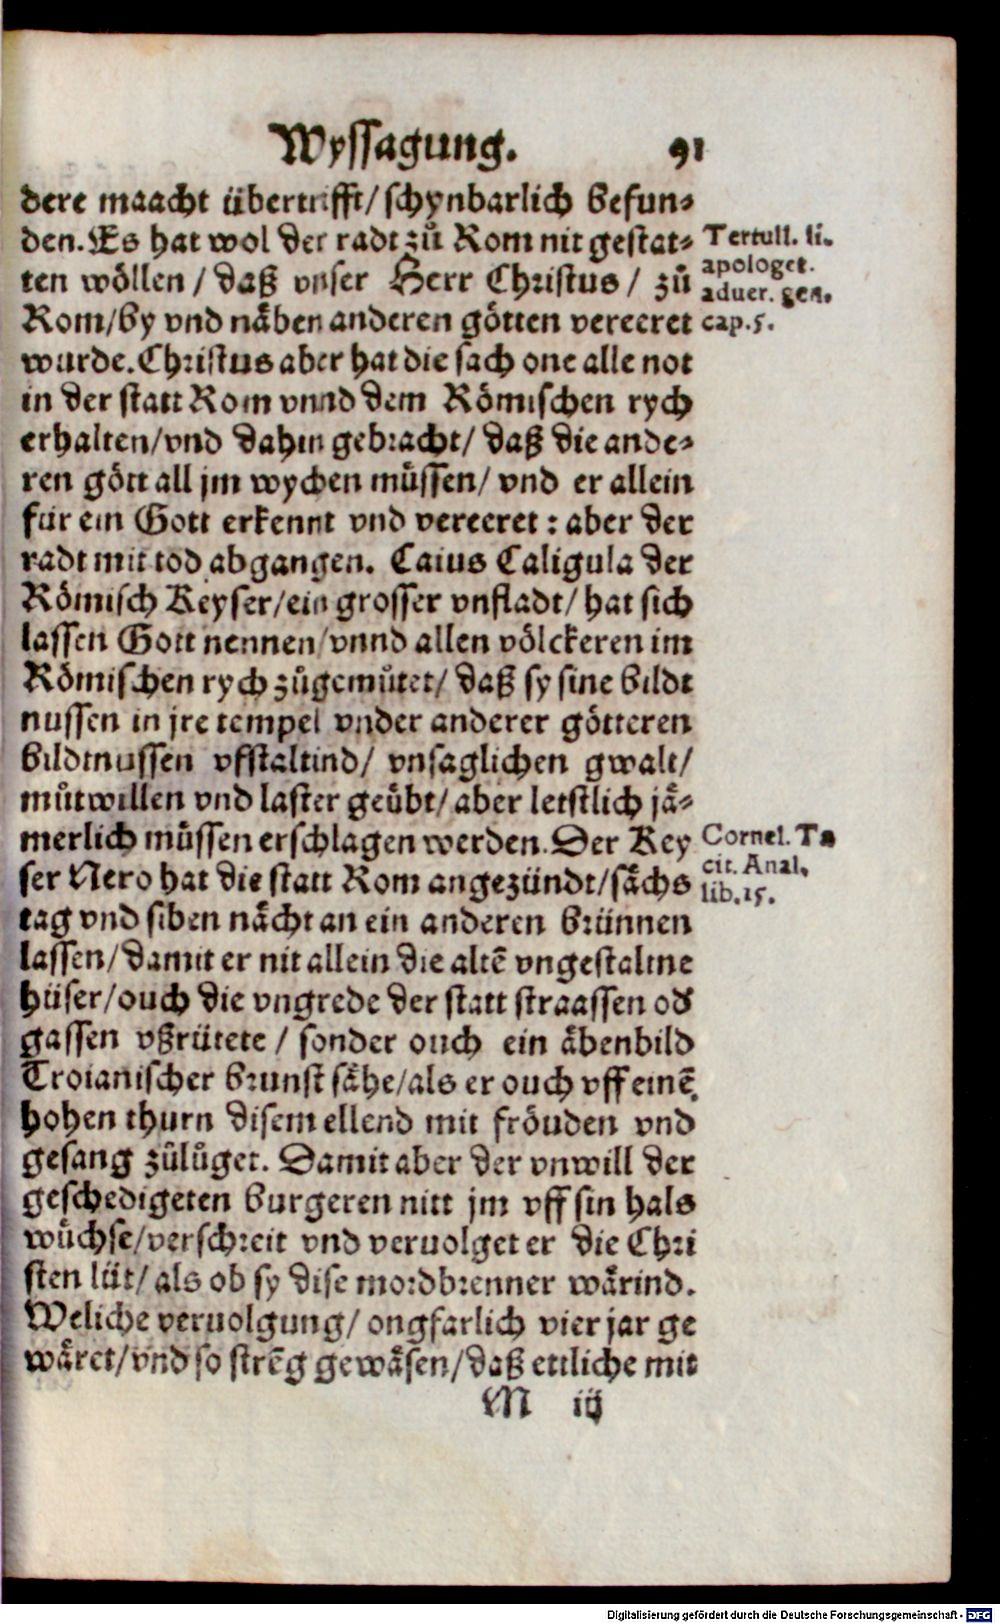 Wyssagung. 91
dere maacht übertrifft/ schynbarlich befun⸗
den. Es hat wol der radt zů Rom nit gestat⸗
Tertull. li.
ten wöllen / daß vnser Herr Christus / zů
apologet.
aduer. gen.
Rom/by vnd näben anderen götten vereeret
cap.5.
wurde. Christus aber hat die sach one alle not
in der statt Rom vnnd dem Römischen rych
erhalten/vnd dahin gebracht/ daß die ande⸗
ren gött all jm wychen müssen/ vnd er allein
für ein Gott erkennt vnd vereeret : aber der
radt mit tod abgangen. Caius Caligula der
Römisch Keyser/ein grosser vnfladt/ hat sich
lassen Gott nennen/vnnd allen völckeren im
Römischen rych zůgemůtet/ daß sy sine bildt
nussen in jre tempel vnder anderer götteren
bildtnussen vfstaltind/ vnsaglichen gwalt/
můtwillen vnd laster geübt/ aber letstlich jä⸗
merlich müssen erschlagen werden. Der Key
Cornel. Ta
ser Nero hat die statt Rom angezündt/sächs
cit. Anal.
lib.15.
tag vnd siben nächt an ein anderen brünnen
lassen/damit er nit allein die altē vngestaltne
hüser/ouch die vngrede der statt straassen od
gassen vßrütete / sonder ouch ein äbenbild
Troianischer brunst sähe/als er ouch vff einē
hohen thurn disem ellend mit fröuden vnd
gesang zůlůget. Damit aber der vnwill der
geschedigeten burgeren nitt jm vff sin hals
wůchse/verschreit vnd veruolget er die Chri
sten lüt/ als ob sy dise mordbrenner wärind.
Weliche veruolgung/ ongfarlich vier jar ge
wäret/vnd so strēg gewäsen/daß ettliche mit
M iij
Digitalisierung gefördert durch die Deutsche Forschungsgemeinschaft - DFG